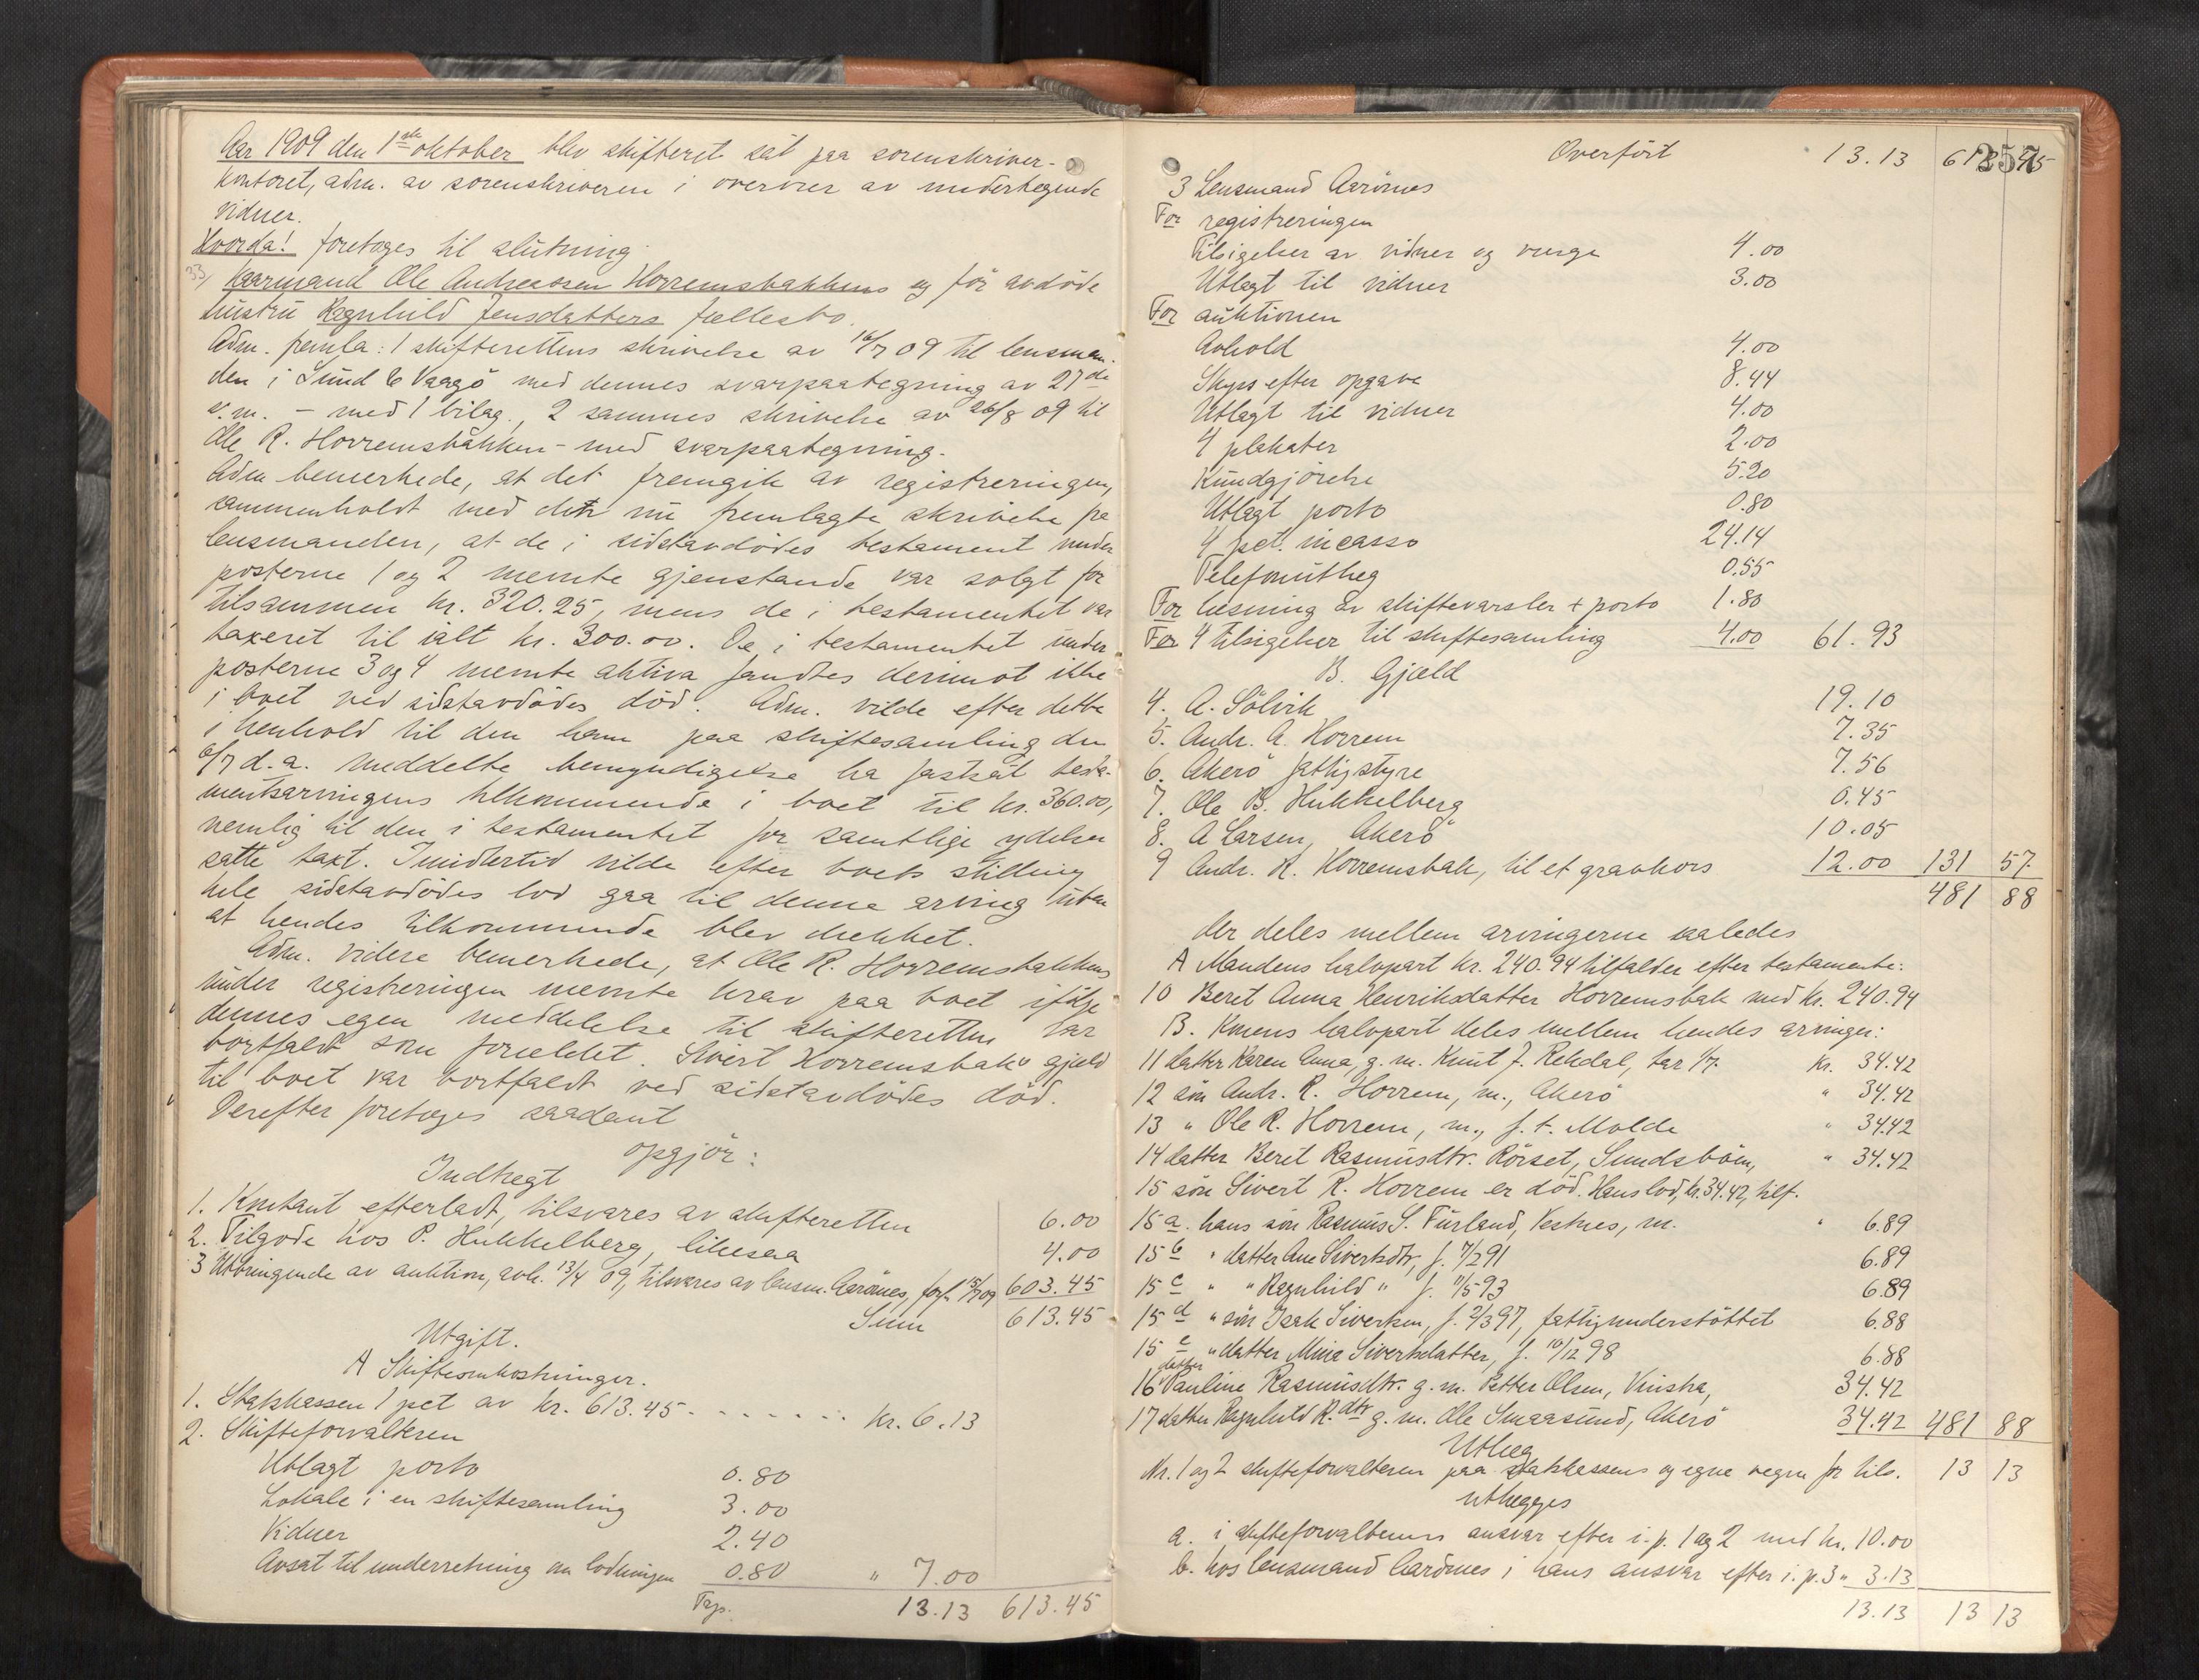 Aar 1909 den 1ste oktober blev skifteret sat paa sorenskriver-
kontoret, adm. av sorenskriveren i overvær av undertegnede
vidner.
Hvorda! foretoges til slutning
33, kaarmand Ole Andreassen Horremsbakkens og før avdøde
hustru Ragnhild Jensdatters fællesbo.
Adm. fremla: 1 skifterettens skrivelse av 16/7 09 til lensman-
den i Sund & Vaagø med dennes svarpaategning av 27de
s.m. - med 1 bilag, 2 sammes skrivelse av 26/8 09 til
Ole R. Horremsbakken - med svarpaategning.
Adm bemerkede, at det fremgik av registreringen,
sammenholdt med den nu fremlagte skrivelse fra
lensmanden, at de i sidstavdødes testament under
posterne 1 og 2 nevnte gjenstande var solgt for
tilsammen kr. 320.25, mens de i testamentet var
taxeret til ialt kr. 300.00. De i testamentet under
posterne 3 og 4 nevnte aktiva fandtes derimot ikke
i boet ved sidstavdødes død. Adm. vilde efter dette
i henhold til den ham paa skiftesamling den
6/7 d.a. meddelte bemyndigelse ha fastsat testa-
mentsarvingens tilkommende i boet til kr. 360.00,
nemlig til den i testamentet for samtlige ydelser
satte taxt. Imidlertid vilde efter boets stilling
hele sidstavdødes lod gaa til denne arving uten
at hendes tilkommende blev dekket.
Adm. videre bemerkede, at Ole R. Horremsbakkens
under registreringen nevnte krav paa boet ifølge
dennes egen meddelelse til skifteretten var
bortfaldt som forældet. Sivert Horremsbaks gjæld
til boet var bortfaldt ved sidstavdødes død.
Derefter foretoges saadant
opgjør:
Indtegt
1. Kontant efterladt, tilsvares av skifteretten 6.00
2. Tilgode hos P. Hukkelberg, likesaa 4.00
3 Utbringende av auktion, avh. 13/4 09, tilsvares av lensm. Aarønes, forf. 15/7 09 603.45
Sum 613.45
Utgift.
A Skifteomkostninger.
1. Statskassen 1 pct av kr. 613.45 - - - - - - - Kr. 6.13
2. Skifteforvalteren
Utlagt porto 0.80
Lokale i en skiftesamling 3.00
Vidner 2.40
Avsat til underretning om lodningen 0.80 " 7.00
Trsp. 13.13 613.45
257
Overført 13.13 613 45
3 Lensmand Aarønes
For registreringen
Tilsigelser av vidner og verge 4.00
Utlagt til vidner 3.00
For auktionen
Avhold 4.00
Skyss efter opgave 8.44
Utlagt til vidner 4.00
4 plakater 2.00
Kundgjørelse 5.20
Utlagt porto 0.80
4 pct. incasso 24.14
Telefonutleg 0.55
For læsning av skiftevarsler + porto 1.80
For 4 tilsigelser til skiftesamling 4.00 61.93
B. Gjæld
4. A. Sølvik 19.10
5. Andr. A. Horrem 7.35
6. Akerø fattigstyre 7.56
7. Ole B. Hukkelberg 0.45
8. A Larsen, Akerø 10.05
9 Andr. R. Horremsbak, til et gravkors 12.00 131 57
481 88
der deles mellem arvingerne saaledes
A Mandens halvpart kr. 240.94 tilfalder efter testamente:
10 Beret Anna Henriksdatter Horremsbak med Kr. 240.94
B. Konens halvpart deles mellem hendes arvinger:
11 datter Karen Anna, g. m. Knut J. Rekdal, tar 1/7. Kr. 34.42
12 søn Andr. R. Horrem, m., Akerø " 34.42
13 " Ole R. Horrem, m., f. t. Molde " 34.42
14 datter Beret Rasmusdtr. Rørset, Sundsbøen, " 34.42
15 søn Sivert R. Horrem er død. Hans lod, kr. 34.42, tilf.
15 a. hans søn Rasmus S. Furland, Vestnes, m. " 6.89
15 b " datter Ane Sivertsdtr, f. 7/2 91 6.89
15 c " " Ragnhild " f. 11/5 93 6.89
15 d " søn Isak Sivertsen, f. 2/3 97, fattigunderstøttet 6.88
15 e " datter Mina Sivertsdatter, f. 10/12 98 6.88
16 datter Pauline Rasmusdtr. g. m. Petter Olsen, Vinstra, 34.42
17 datter Ragnhild R.dtr g. m. Ole Smaasund, Akerø 34.42 481 88
Utleg
Nr. 1 og 2 skifteforvalteren paa statskassens og egne vegne for tils. 13 13
utlegges
a. i skifteforvalterens ansvar efter i. p. 1 og 2 med kr. 10.00
b. hos lensmand Aarønes i hans ansvar efter i. p. 3 " 3.13
13.13 13 13